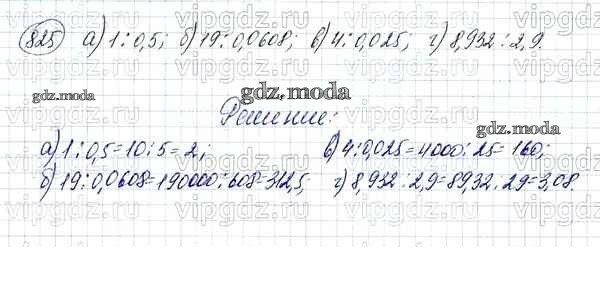 825 а) 1:0,5; б) 19:0,0608; в) 4:0,025; г) 8,932:2,9.
gdz.moda gdz.moda
Решение:
gdz.moda
а) 1:0,5=10:5=2; в) 4:0,025=4000:25=160;
б) 19:0,0608=190000:608=312,5; г) 8,932:2,9=89,32:29=3,08.